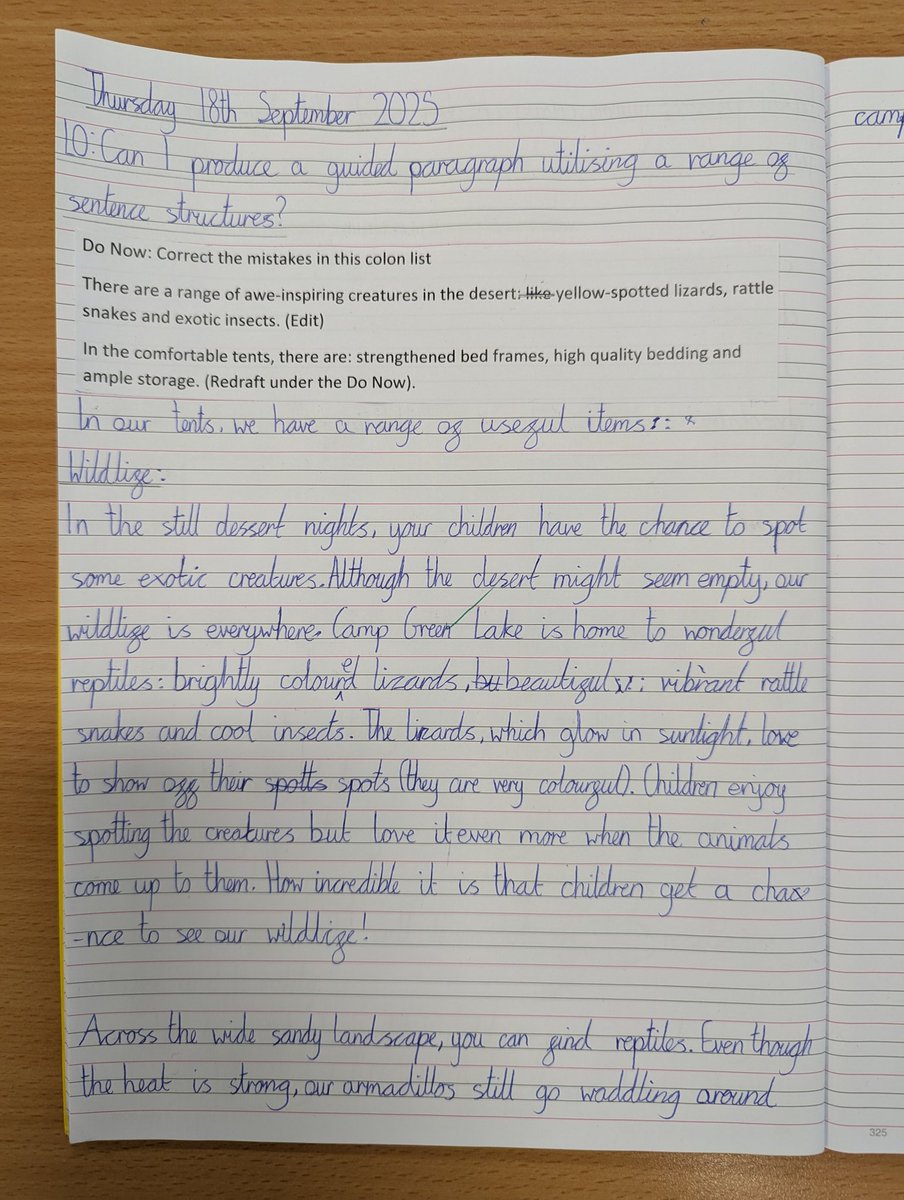 Thursday 18th September 2025
LO: Can I produce a guided paragraph utilising a range of
sentence structures?
Do Now: Correct the mistakes in this colon list
There are a range of awe-inspiring creatures in the desert: like yellow-spotted lizards, rattle
snakes and exotic insects. (Edit)
In the comfortable tents, there are: strengthened bed frames, high quality bedding and
ample storage. (Redraft under the Do Now).
In our tents, we have a range of useful items: *
Wildlife:
In the still dessert nights, your children have the chance to spot
some exotic creatures. Although the desert might seem empty, our
wildlife is everywhere. Camp Green Lake is home to wonderful
reptiles: brightly coloured lizards, but beautiful, vibrant rattle
snakes and cool insects. The lizards, which glow in sunlight, love
to show off their spotts spots (they are very colourful). Children enjoy
spotting the creatures but love it even more when the animals
come up to them. How incredible it is that children get a cha
-nce to see our wildlife!
Across the wide sandy landscape, you can find reptiles. Even though
the heat is strong, our armadillos still go waddling around
325